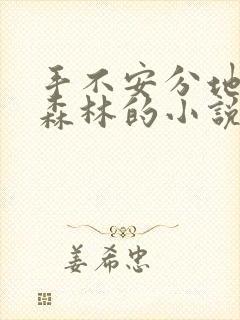 手不安分地
森林的小说
姜希忠